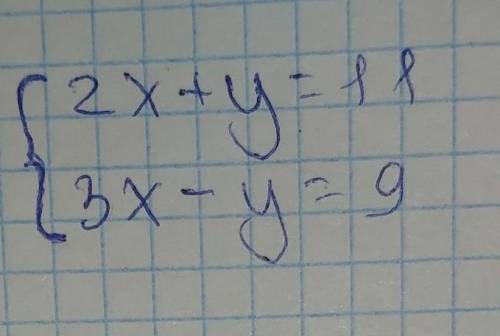 2x+y=11
3x-y=9